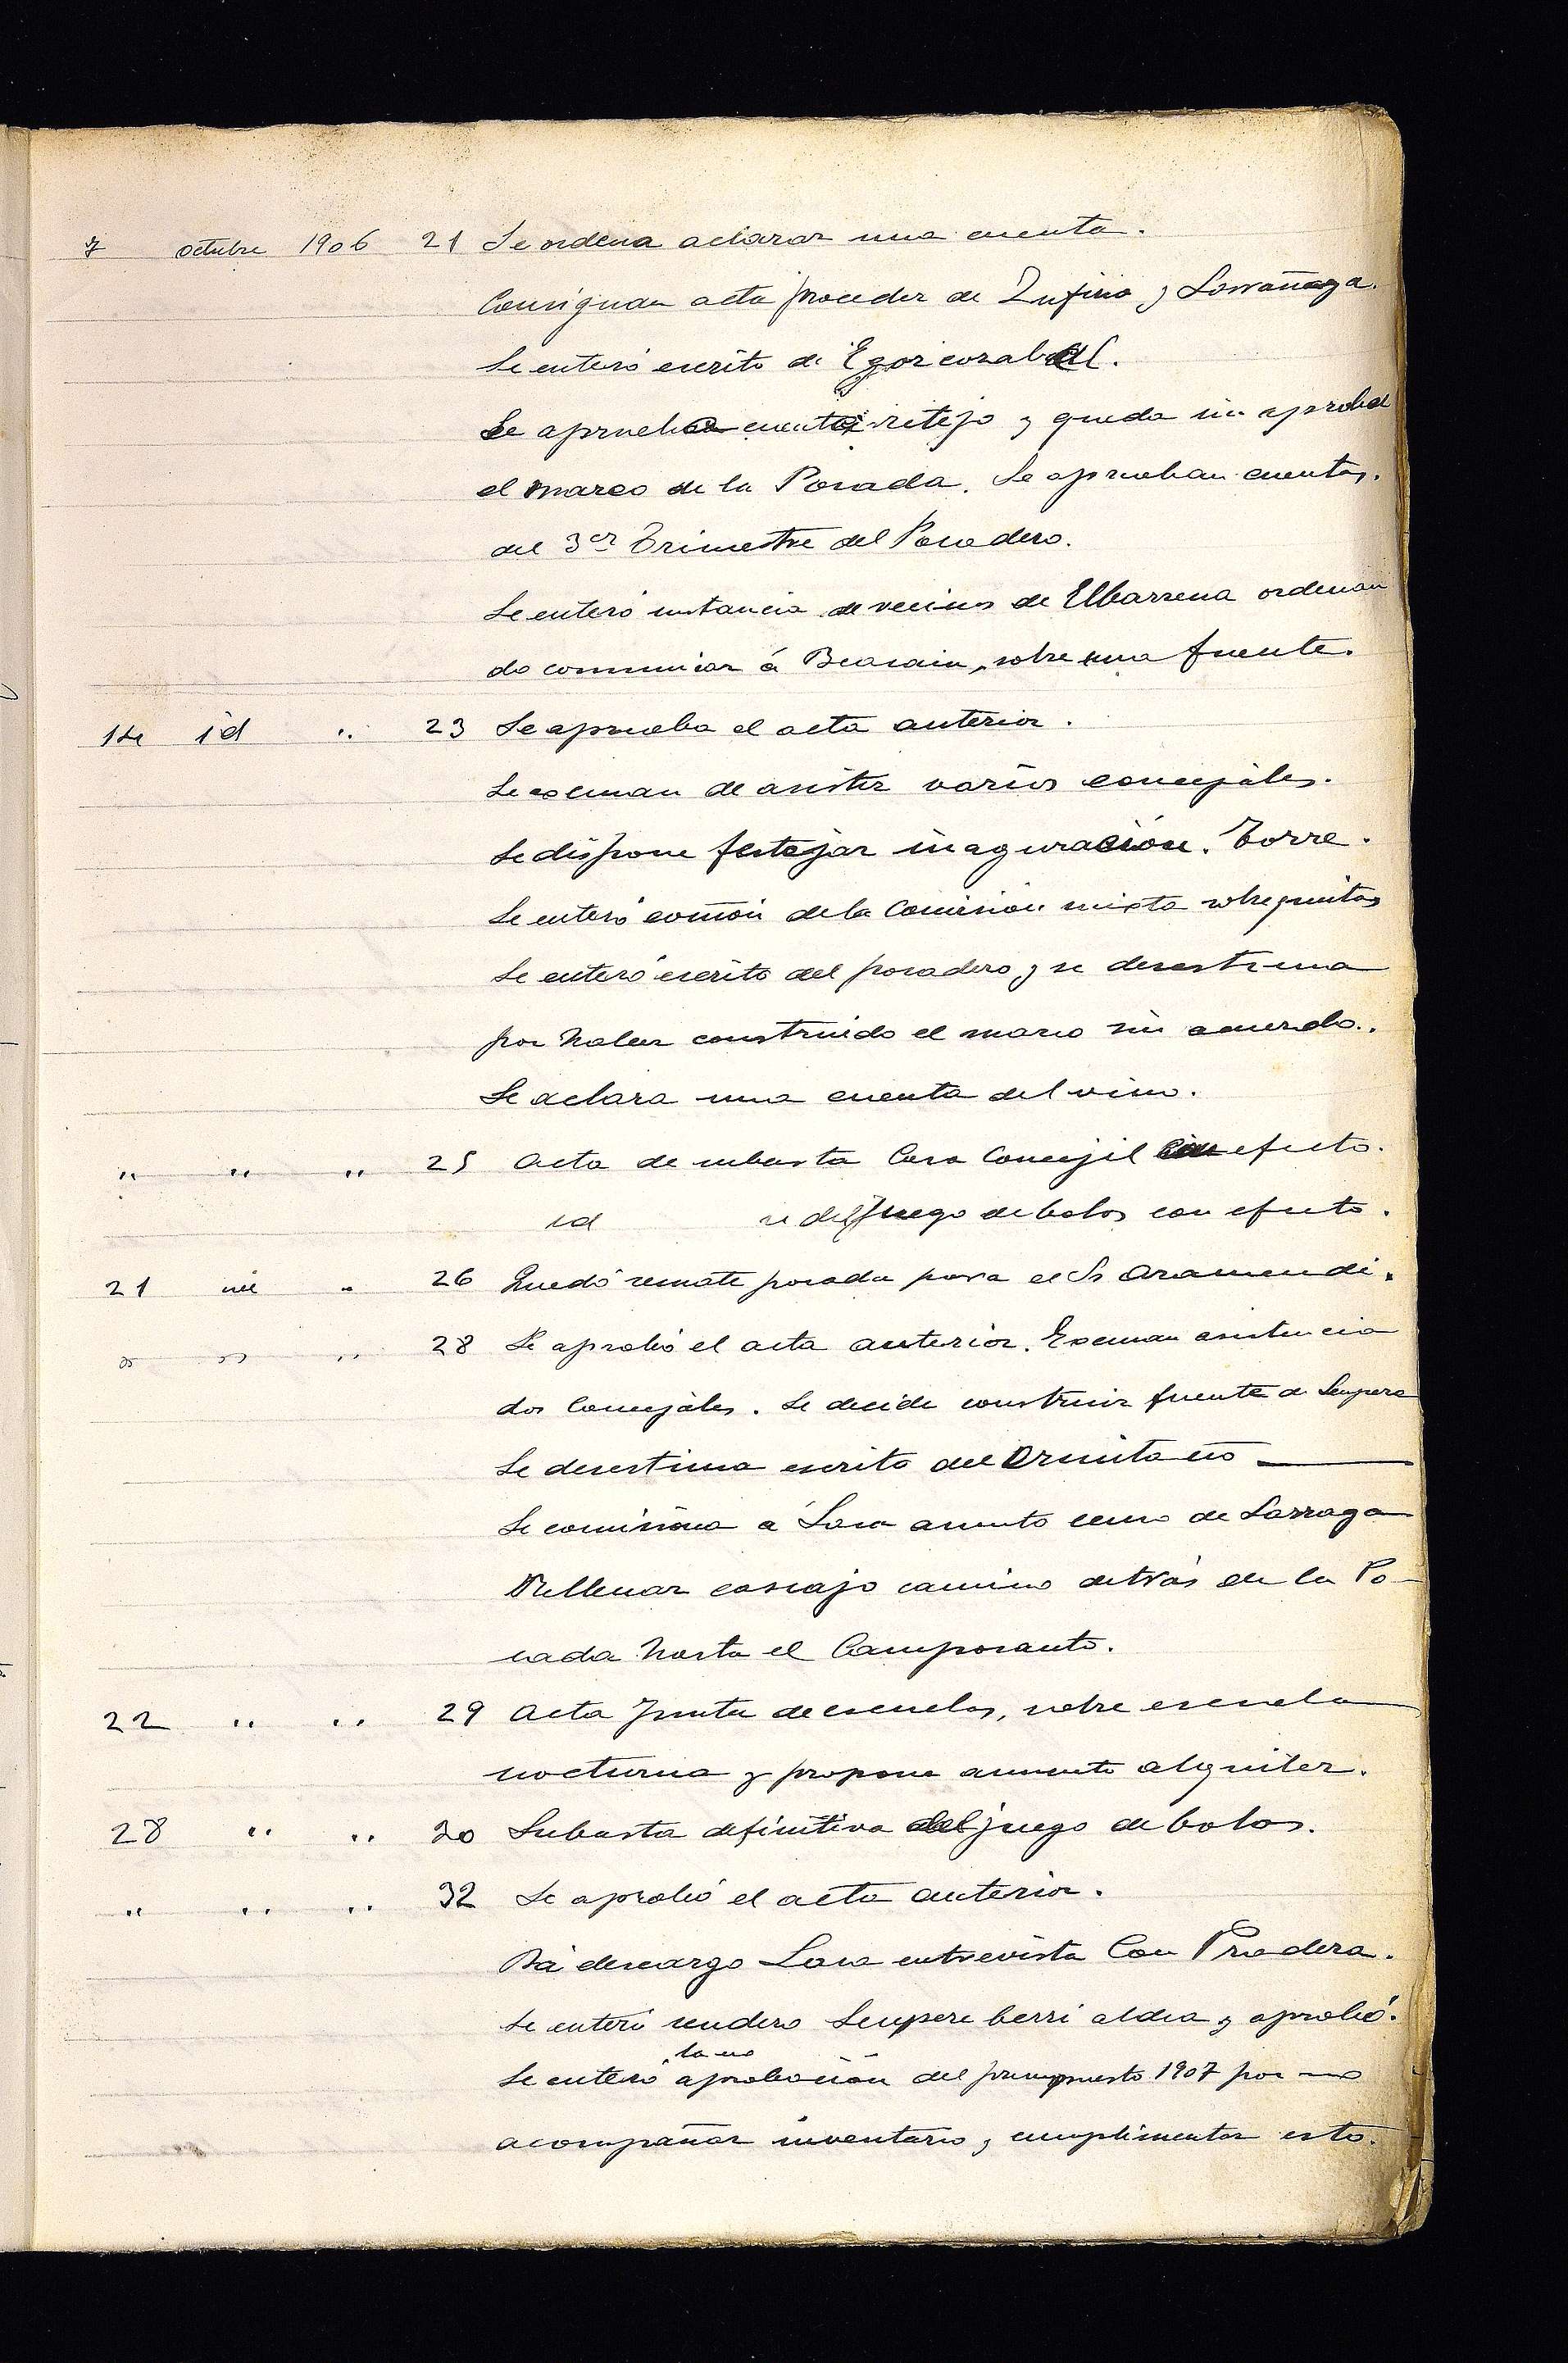 7 octubre 1906 21 Se ordena aclarar una cuenta.
Consignan acta proceder de Zufiria y Larrañaga.
Se enteró escrito de
Se aprueba cuenta retejo y queda sin aprobar
el marco de la Posada. Se aprueban cuentas.
del 3er Trimestre del Posadero.
Se enteró instancia de vecinos de Elbarrena ordenan
do comunicar á Beasain, sobre una fuente.
14 id " 23 Se aprueba el acta anterior.
Se escusan de asistir varios concejales.
Se dispone festejar inaguración. Torre.
Se enteró comón de la Comisión mixta sobre quintas
Se enteró escrito del posadero y se desestima
por haber construido el marco sin acuerdo.
Se aclara una cuenta del vino.
" " " 25 Acta de subasta Casa Concejil sin efecto.
id id del juego de bolos con efecto.
21 " 26 Quedó remate posada para el Sr Aramendi.
" " " 28 Se aprobó el acta anterior. Escusan asistencia
dos Concejales. Se decide construir fuente de Sempere
Se desestima escrito del Ermitaño
Se comisiona á Lasa asunto censo de Larraga
Rellenar cascajo camino detrás de la Po-
sada hasta el Camposanto.
22 " " 29 Acta Junta de escuelas, sobre escuela
nocturna y propone aumento alquiler.
28 " " 30 Subasta definitiva del juego de bolos.
" " " 32 Se aprobó el acta anterior.
Dá descargo Lasa entrevista Con Pradera.
Se enteró sendero Sempere berri aldea y aprobó.
Se enteró la no aprobación del presupuesto 1907 por no
acompañar inventario, cumplimentar esto.